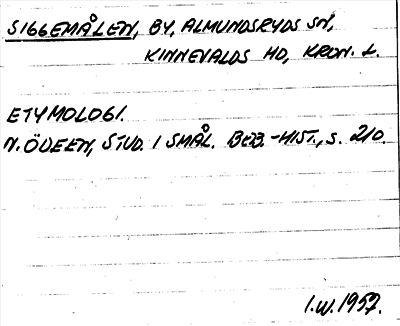 SIGGEMÅLEN, BY, ALMUNDSRYDS SN,
KINNEVALDS HD, KRON. L.
ETYMOLOGI.
N. ÖDEEN, STUD. I SMÅL. BEB.-HIST., S. 210.
I.W. 1957.